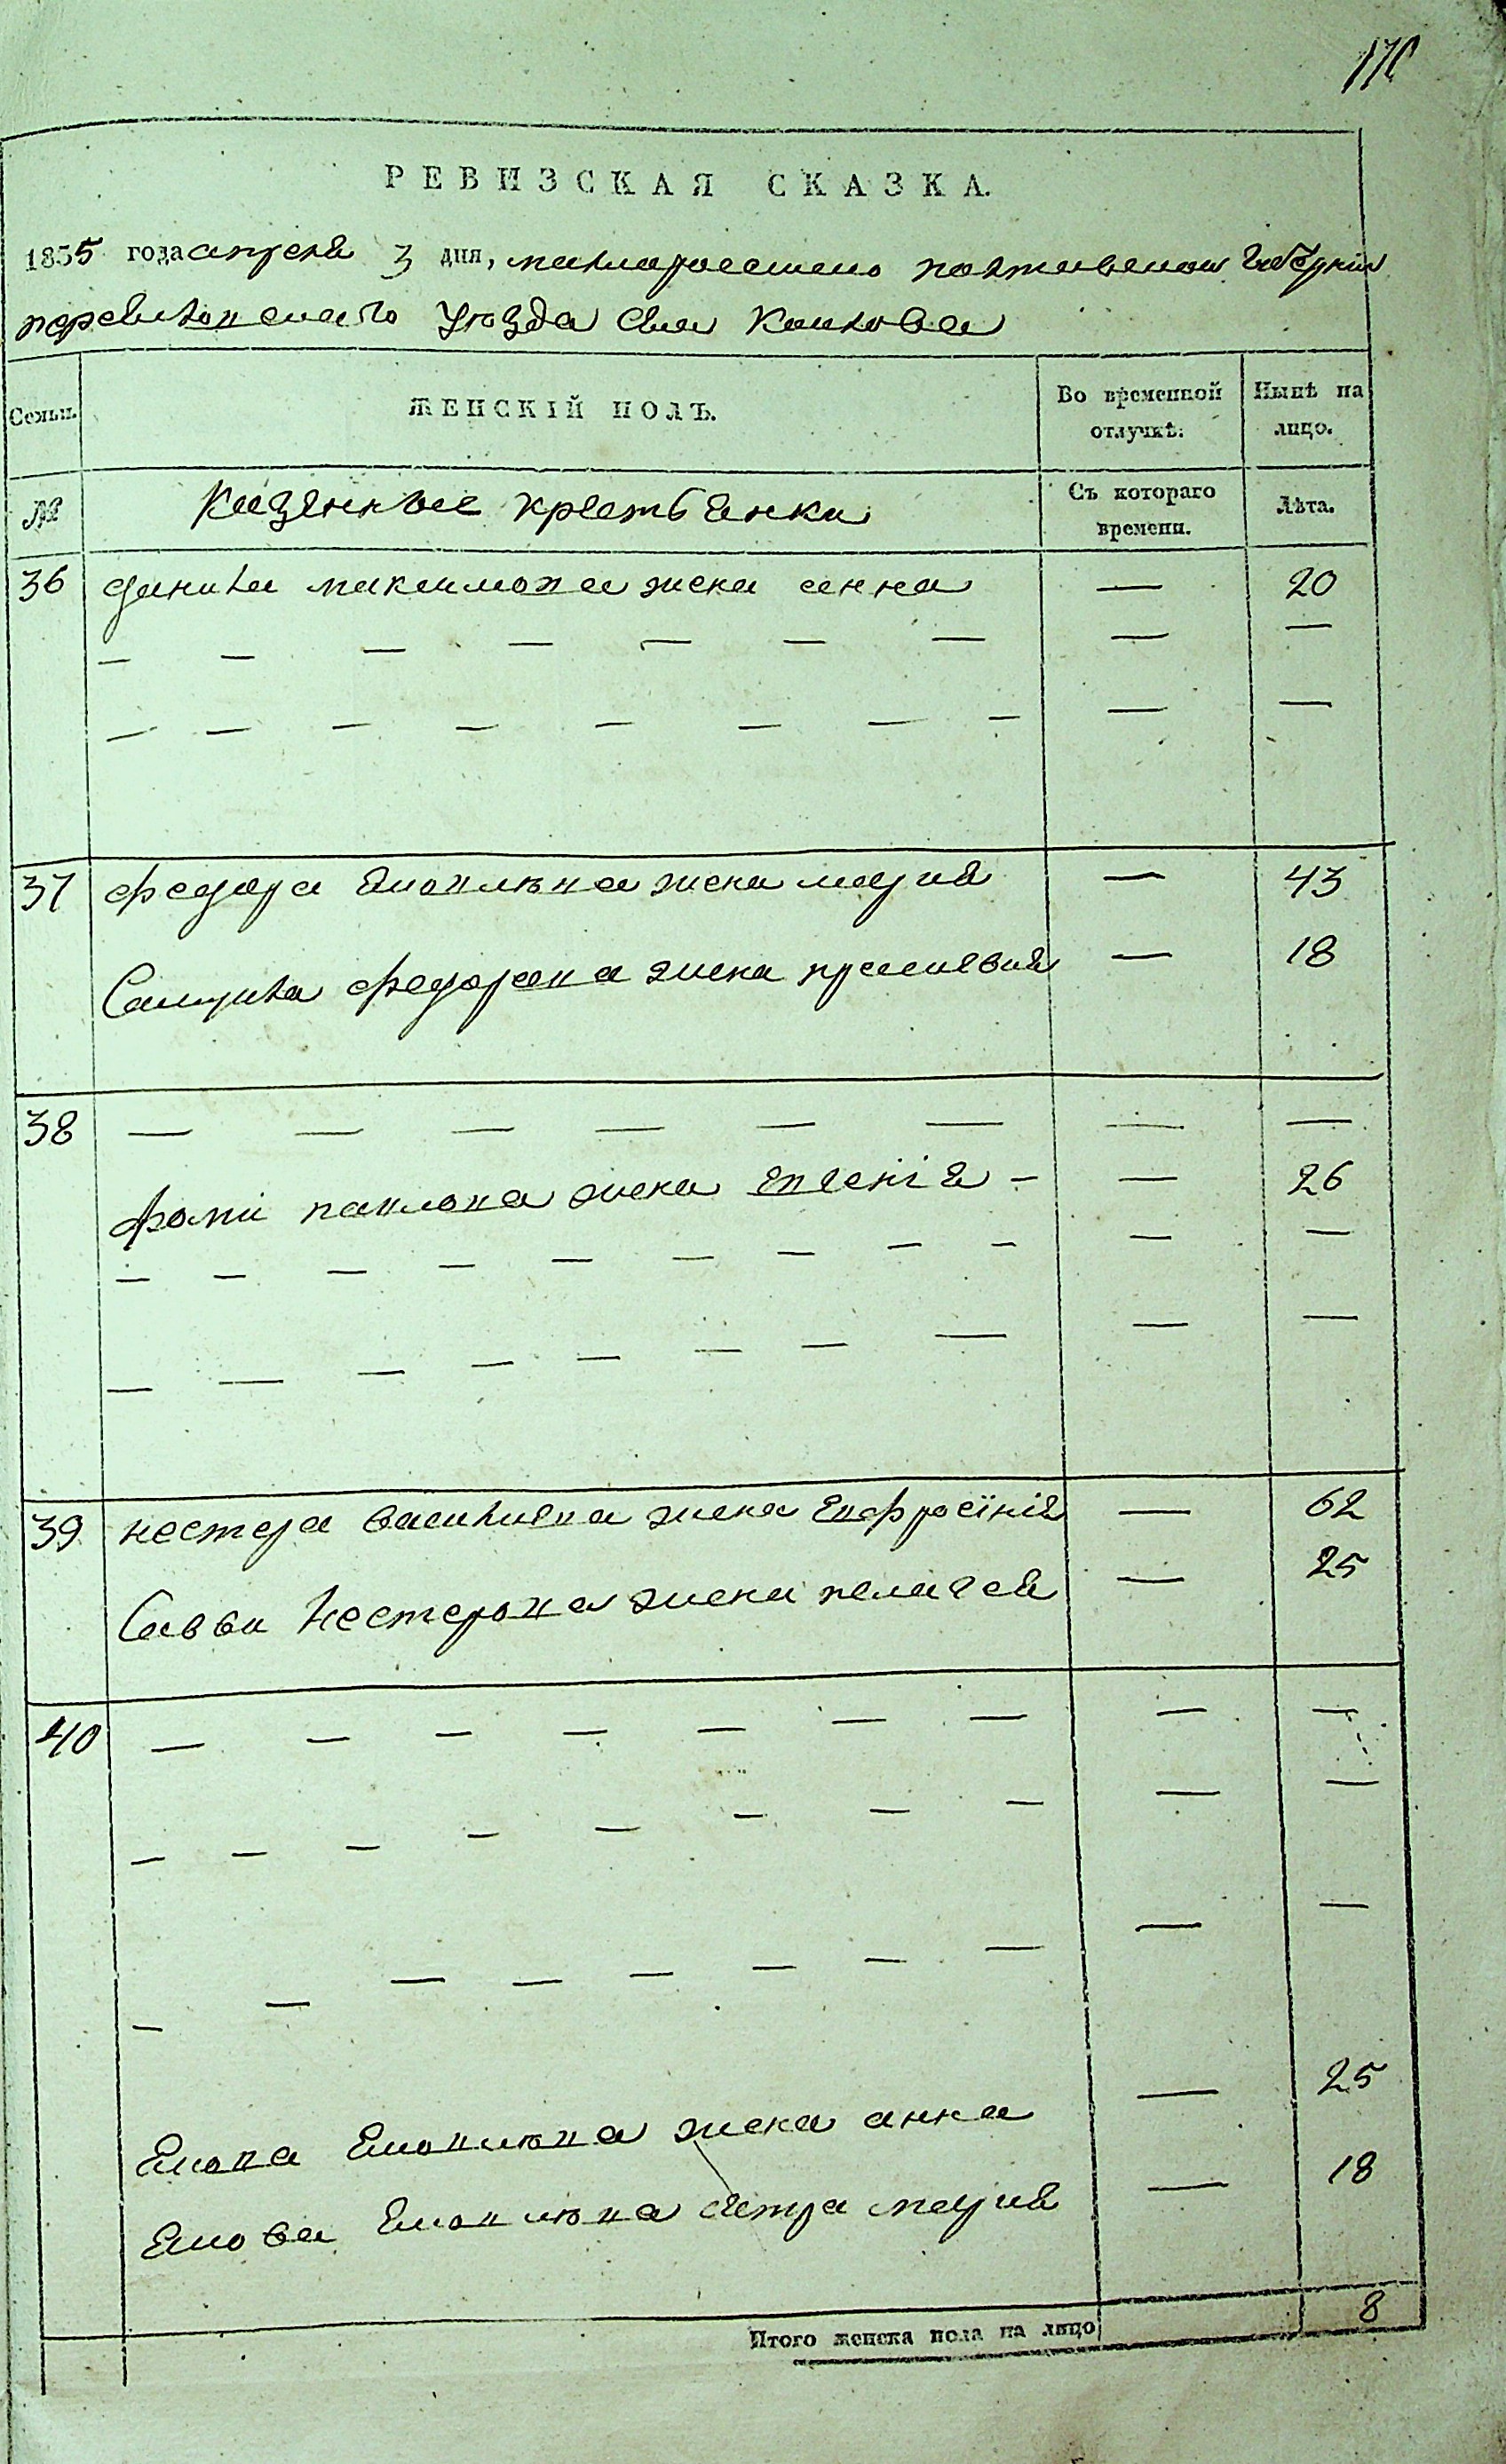 РЕВИЗСКАЯ СКАЗКА.
1835 года апреля 3 дня, малоросейско полтавской губернии
переяславского уезда села
Семьи. ЖЕНСКІЙ ПОЛЪ. Во временной отлучкѣ. Нынѣ на лицо.
№ Казенные крестьянки Съ котораго времени. Лѣта.
36 данила максимова жена анна — 20
— — — — — — — — —
— — — — — — — — — —
37 федора жена мария — 43
федорова жена — 18
38 — — — — — — — —
фомы павлова жена евгенія — — 26
— — — — — — — — — —
— — — — — — — — — —
39 нестера васильева жена Евфросинія — 62
Саввы Нестерова жена пелагея — 25
40 — — — — — — — — —
— — — — — — — — — —
— — — — — — — — — —
жена анна — 25
сестра мария — 18
Итого женска пола на лицо 8